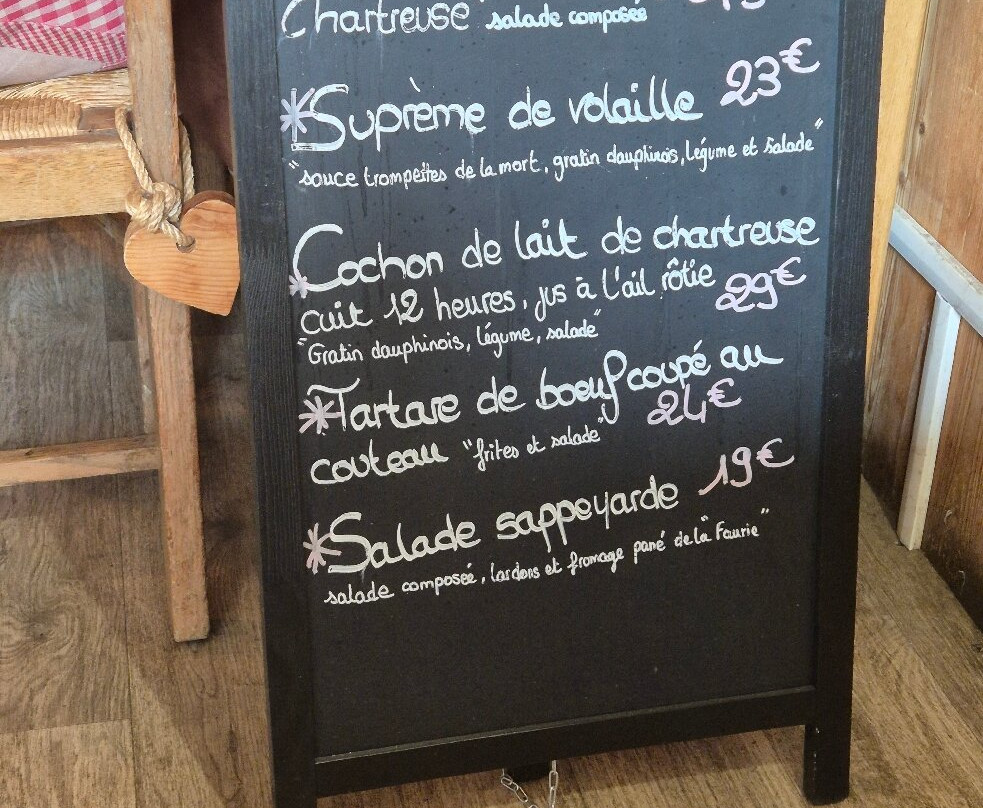 Chartreuse salade composée
*Suprème de volaille 23€
"sauce trompettes de la mort, gratin dauphinois, légume et salade"
*Cochon de lait de chartreuse
cuit 12 heures, jus à l'ail rôtie 29€
"Gratin dauphinois, légume, salade"
*Tartare de boeuf coupé au
couteau "frites et salade" 24€
*Salade sappeyarde 19€
salade composée, lardons et fromage pané de la "Faurie"